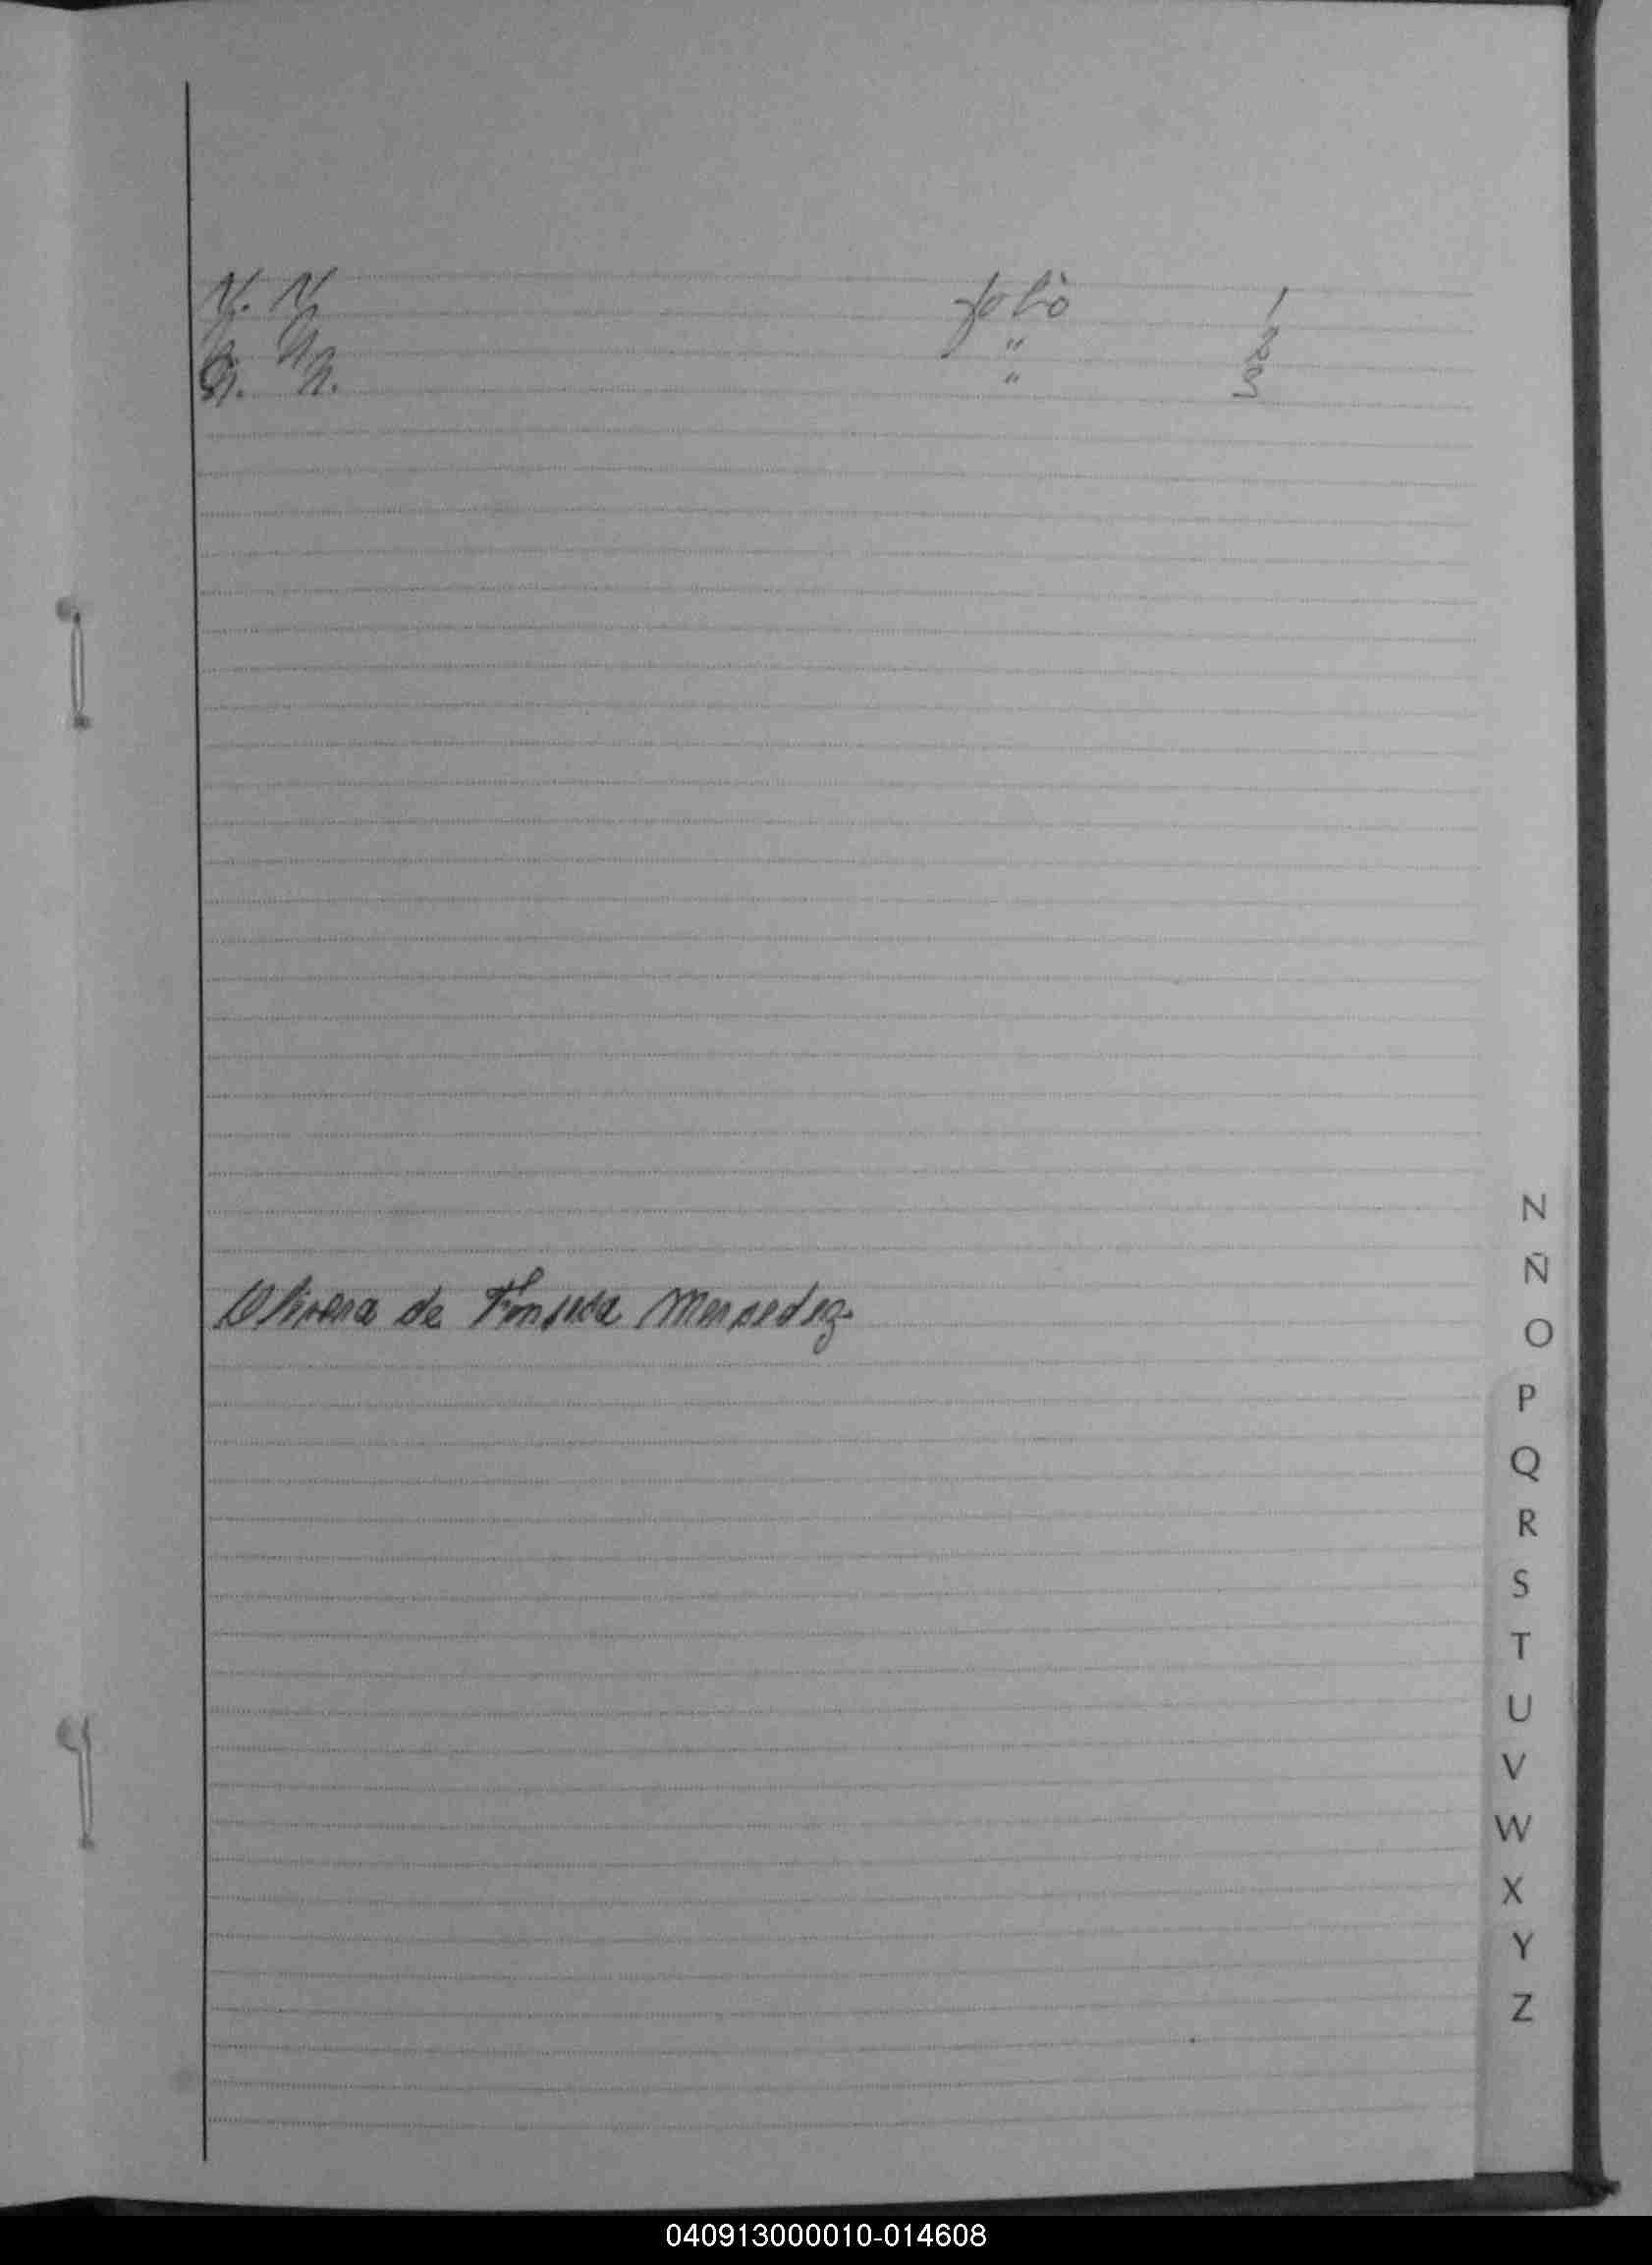 N. N. folio 1
N. N. " 2
N. N. " 3
Olivera de Fonseca Mercedez
N
Ñ
O
P
Q
R
S
T
U
V
W
X
Y
Z
040913000010-014608